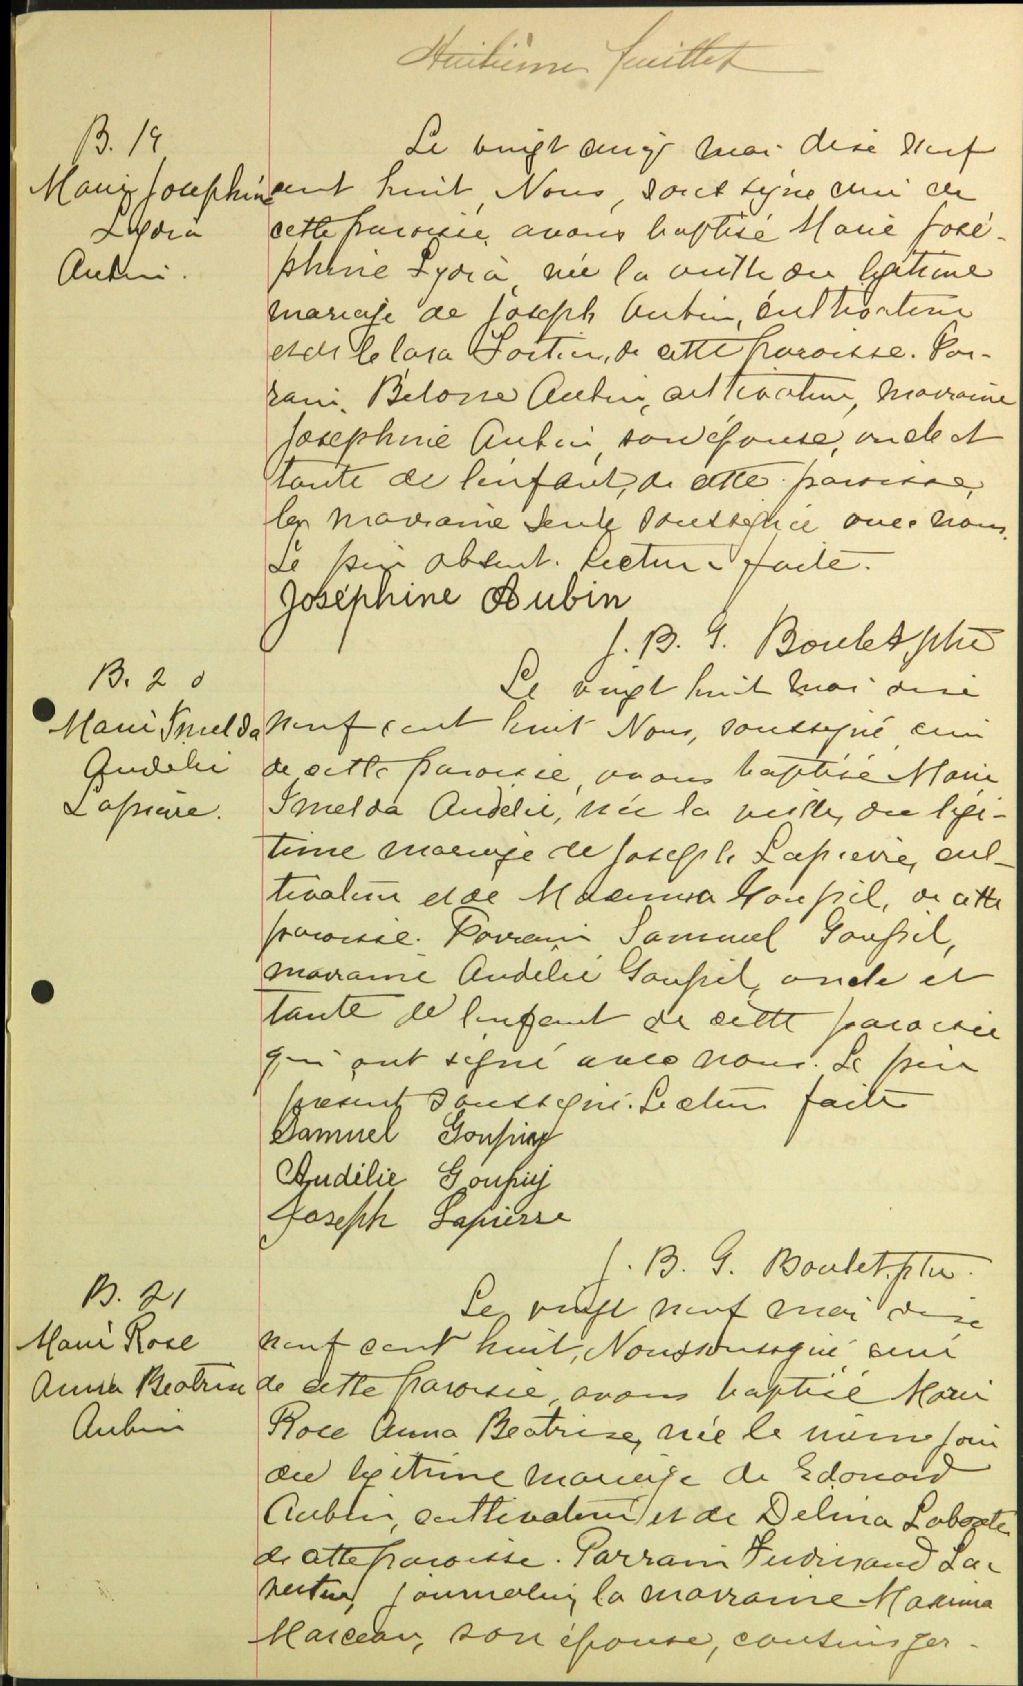 Huitième feuillet
B. 19
Marie Josephine
Lydia
Aubin.
Le vingt cinq mai dix neuf
cent huit, Nous, soussigné curé de
cette paroisse, avons baptisé Marie José-
phine Lydia, née la veille du légitime
mariage de Joseph Aubin, cultivateur
et de Clara Fortin, de cette paroisse. Par-
rain, Aubin, cultivateur, marraine
Josephine Aubin, son épouse, oncle et
tante de l'enfant, de cette paroisse,
la marraine seule soussignée avec nous.
Le père absent. Lecture faite.
Joséphine Aubin
J. B. G. Boulet, ptre
B. 20
Marie Imelda
Audélie
Lapierre.
Le vingt huit mai dix
neuf cent huit Nous, soussigné, curé
de cette paroisse, avons baptisé Marie
Imelda Audélie, née la veille, du légi-
time mariage de Joseph Lapierre, cul-
tivateur et de Goupil, de cette
paroisse. Parrain Samuel Goupil,
marraine Audélie Goupil, oncle et
tante de l'enfant de cette paroisse
qui ont signé avec nous. Le père
présent soussigné. Lecture faite
Samuel Goupil
Audélie Goupil
Joseph Lapierre
J. B. G. Boulet, ptre.
B. 21
Marie Rose
Anna Beatrice
Aubin
Le vingt neuf mai dix
neuf cent huit, Nous soussigné, curé
de cette paroisse, avons baptisé Marie
Rose Anna Beatrice, née le même jour
du légitime mariage de Edouard
Aubin, cultivateur et de Delina
de cette paroisse. Parrain Ferdinand La-
journalier, la marraine Maxima
Marceau, son épouse, cousins ger-